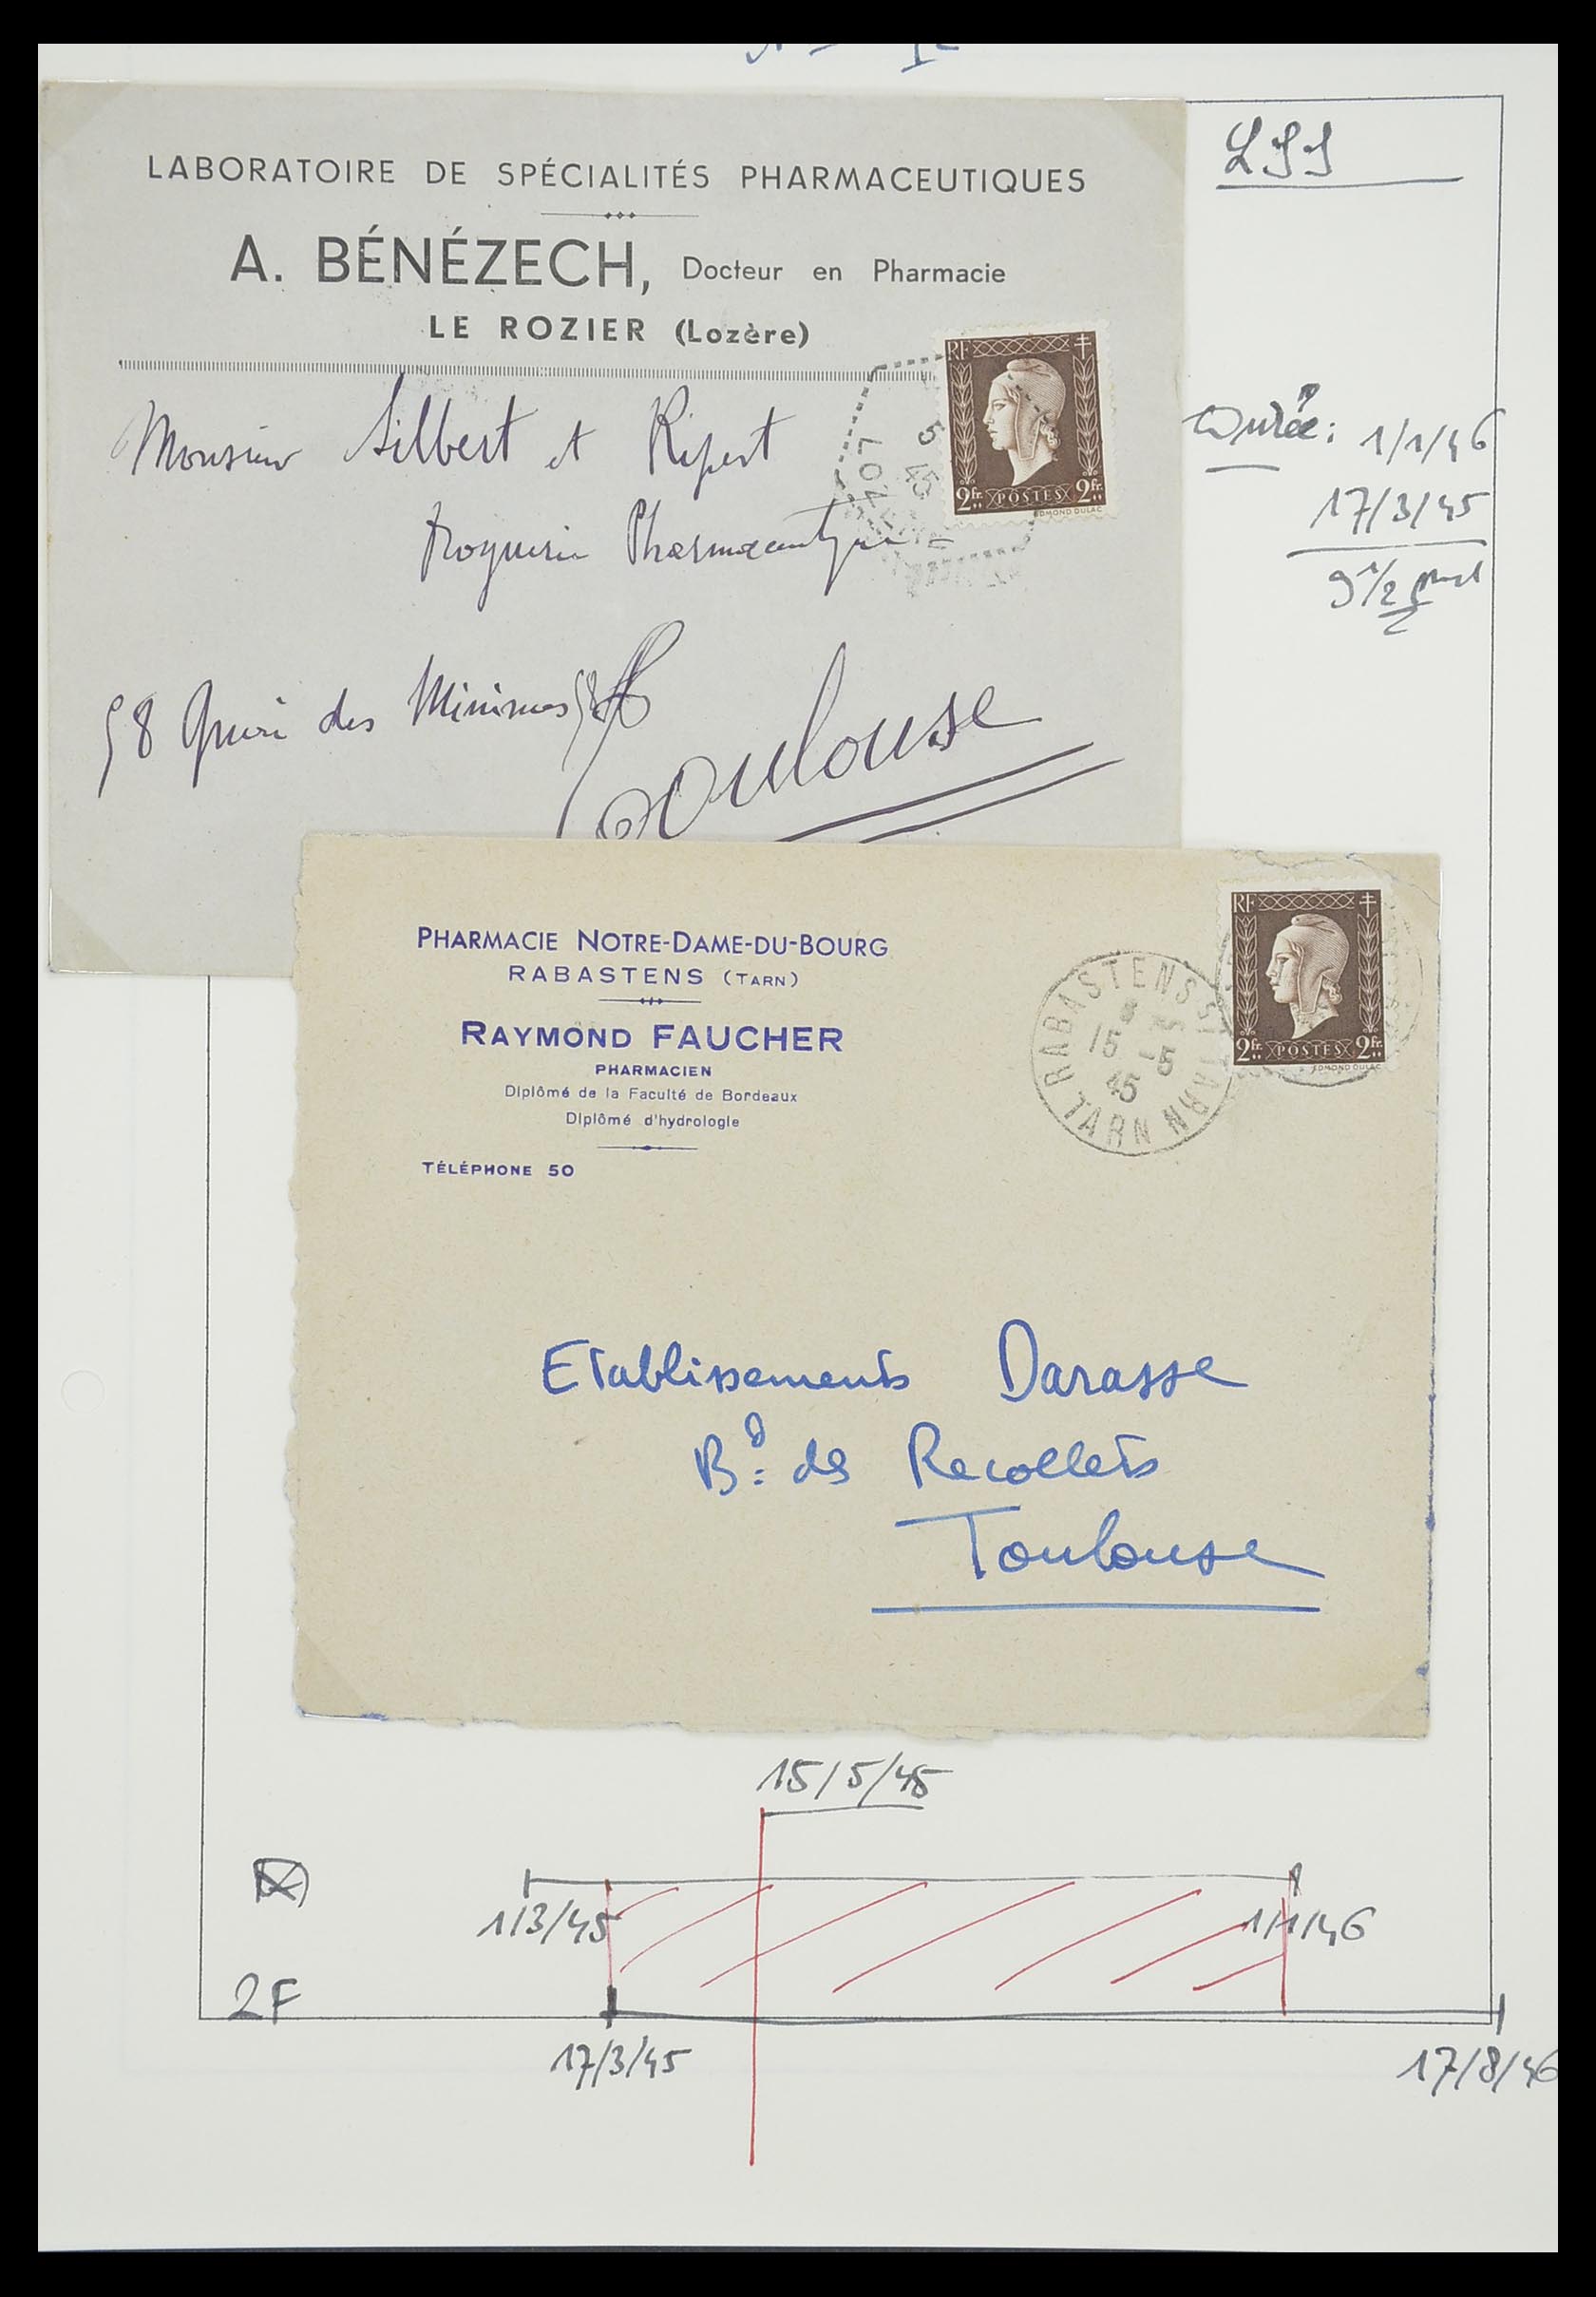 LABORATOIRE DE SPÉCIALITÉS PHARMACEUTIQUES
A. BÉNÉZECH, Docteur en Pharmacie
LE ROZIER (Lozère)
RF
2fr. POSTES 2fr.
EDMOND DULAC
5
45
LOZÈRE
Monsieur Silbert et Ripert
Droguerie Pharmaceutique
58 Quai des Minimes 58
Toulouse
LSI
Durée: 1/1/46
17/3/45
9 1/2
PHARMACIE NOTRE-DAME-DU-BOURG
RABASTENS (TARN)
RAYMOND FAUCHER
PHARMACIEN
Diplômé de la Faculté de Bordeaux
Diplômé d'hydrologie
TÉLÉPHONE 50
RABASTENS S/ TARN
15 -5
45
TARN
RF
2fr. POSTES 2fr.
EDMOND DULAC
Etablissements Darasse
Bd des Recollets
Toulouse
15/5/45
1/3/45
1/1/46
2F
17/3/45
17/8/46